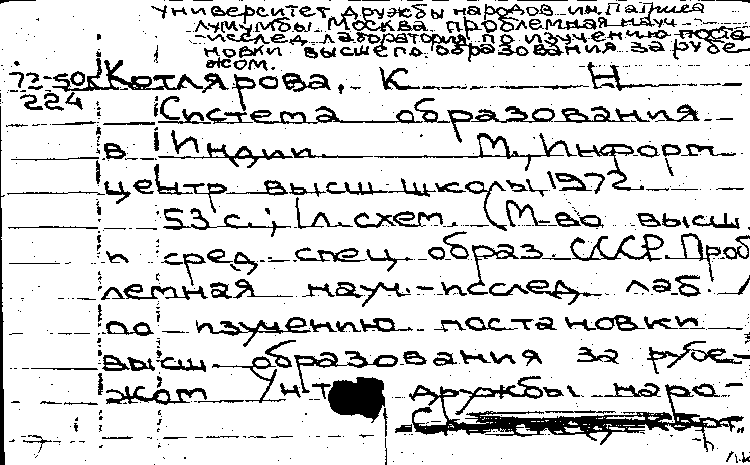 Университет дружбы народов им. Патриса
Лумумбы. Москва. Проблемная науч.
-исслед. лаборатория по изучению поста-
новки высшего образования за рубе-
жом.
72-50
Котлярова, К Н
224
Система образования
в Индии. М., Информ.
центр высш. школы, 1972.
53 с.; 1 л. схем. (М-во высш.
и сред. спец. образ. СССР. Проб
лемная науч.-исслед. лаб.
по изучению постановки
высш. образования за рубе-
жом Ун-т дружбы наро-